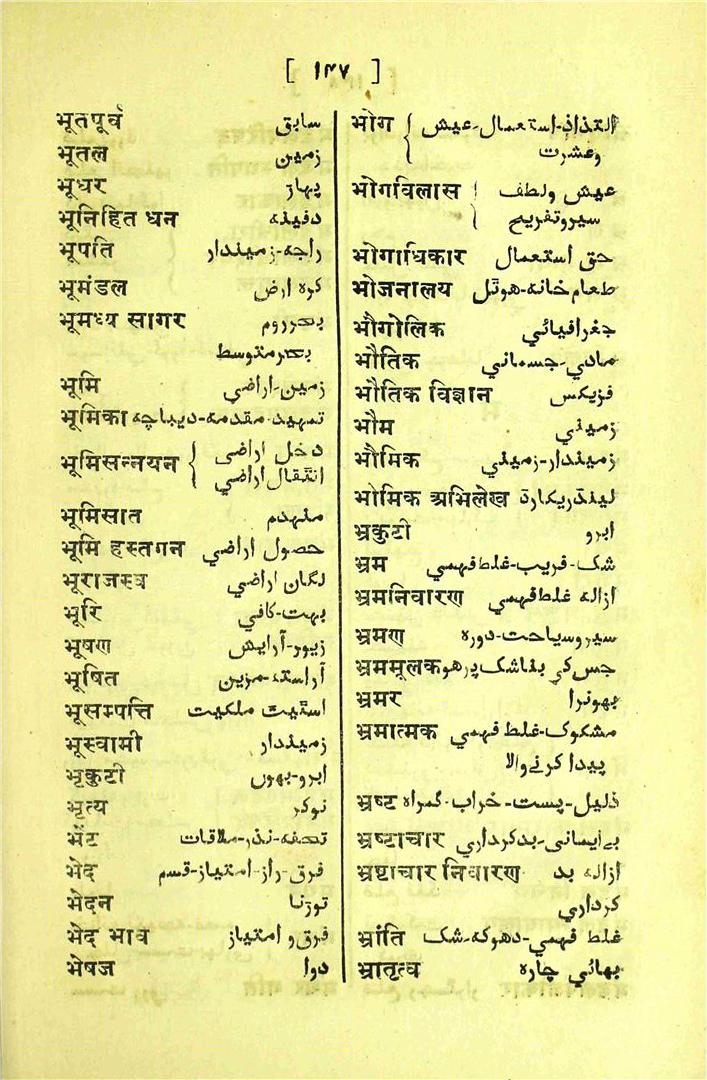 [ ۱۴۷ ]
भूतपूर्व سابق
भूतल زمین
भूधर پہاڑ
भूनिहित धन دفینہ
भूपति راجہ-زمیندار
भूमंडल کرہ ارض
भूमध्य सागर بحرروم
بحرمتوسط
भूमि زمین-اراضی
भूमिका تمہید-مقدمہ-دیباچہ
भूमिसन्नयन { دخل اراضی
انتقال اراضی
भूमिसात منہدم
भूमि हस्तगन حصول اراضی
भूराजस्व لگان اراضی
भूरि بہت-کافی
भूषण زیور-آرایش
भूषित آراستہ-مزین
भूसम्पत्ति اسٹیٹ ملکیت
भूस्वामी زمیندار
भृकुटी ابرو-بھوں
भृत्य نوکر
भेंट تحفہ-نذر-ملاقات
भेद فرق-راز-امتیاز-قسم
भेदन توڑنا
भेद भाव فرق و امتیاز
भेषज دوا
भोग { التذاذ-استعمال-عیش
وعشرت
भोगविलास { عیش ولطف
سیروتفریح
भोगाधिकार حق استعمال
भोजनालय طعام خانہ-ھوٹل
भौगोलिक جغرافیائی
भौतिक مادی-جسمانی
भौतिक विज्ञान فزیکس
भौम زمینی
भौमिक زمیندار-زمینی
भोमिक अभिलेख لینڈریکارڈ
भ्रकुटी ابرو
भ्रम شک-فریب-غلط فہمی
भ्रमनिवारण ازالہ غلط فہمی
भ्रमण سیروسیاحت-دورہ
भ्रममूलक جس کی بناشک پرھو
भ्रमर بھونرا
भ्रमात्मक مشکوک-غلط فہمی
پیدا کرنے والا
भ्रष्ट ذلیل-پست-خراب-گمراہ
भ्रष्टाचार بےایمانی-بدکرداری
भ्रष्टाचार निवारण ازالہ بد
کرداری
भ्रांति غلط فہمی-دھوکہ-شک
भ्रातृत्व بھائی چارہ